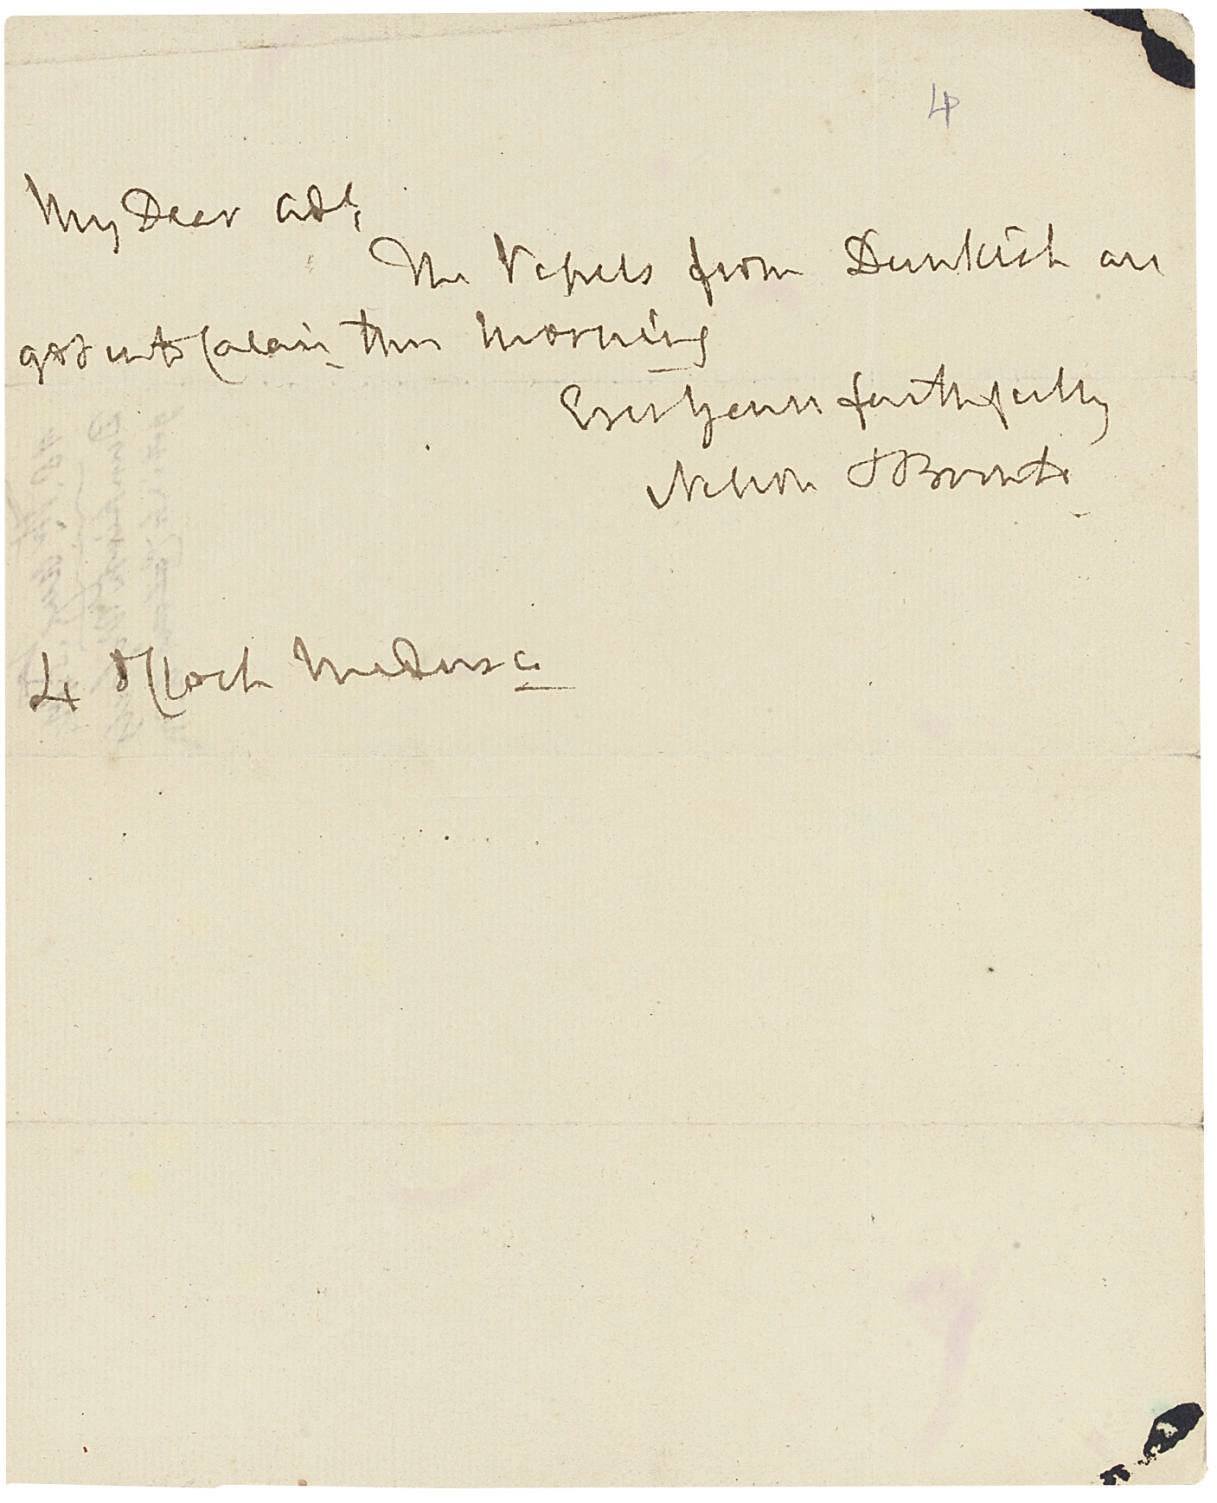 4
My Dear Adl.
The Vessels from Dunkirk are
got into Calais this Morning
Ever Yours faithfully
Nelson & Bronte
4 o Clock Medusa